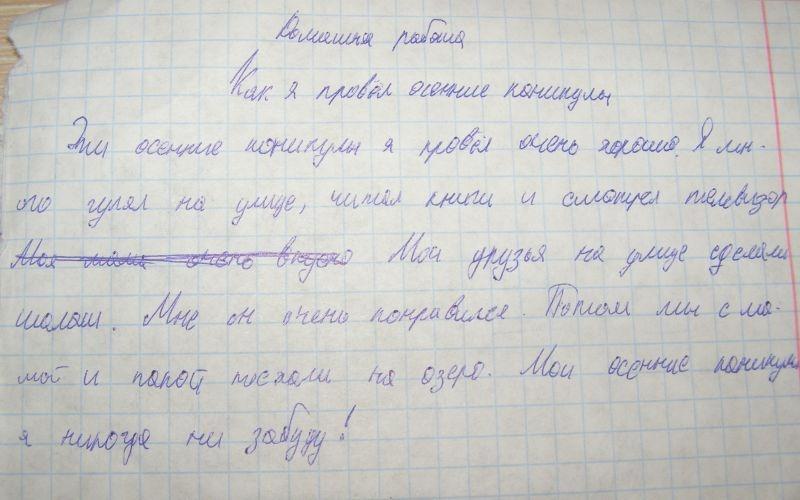 Домашняя работа
Как я провёл осенние каникулы
Эти осенние каникулы я провёл очень хорошо. Я мн-
ого гулял на улице, читал книги и смотрел телевизор
Моя мама очень вкусно Мои друзья на улице сделали
шалаш. Мне он очень понравился. Потом мы с ма-
мой и папой поехали на озеро. Мои осенние каникулы
я никогда ни забуду!